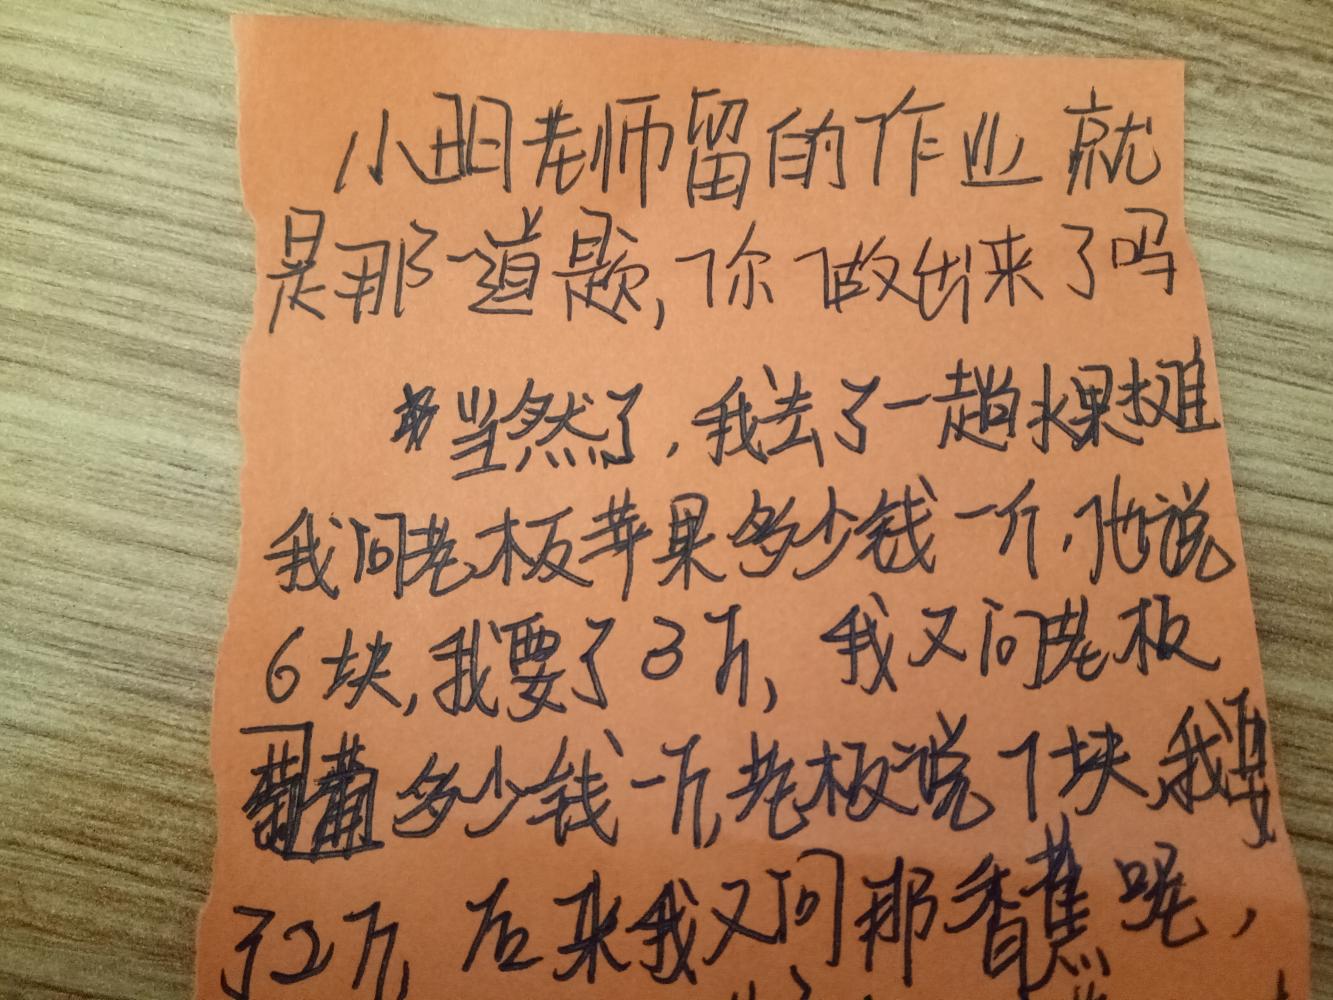 小明老师留的作业就
是那一道题,你做出来了吗
当然了,我去了一趟水果摊
我问老板苹果多少钱一斤,他说
6块,我要了3斤,我又问老板
葡萄多少钱一斤,老板说7块,我要
了2斤,后来我又问那香蕉呢,